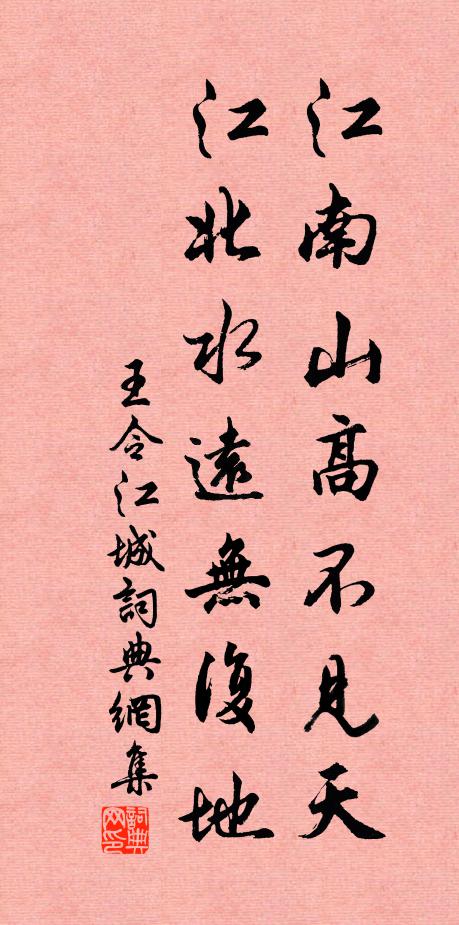 江南山高不見天
江北水遠無復地
王令江城詞典網集
詞典网印